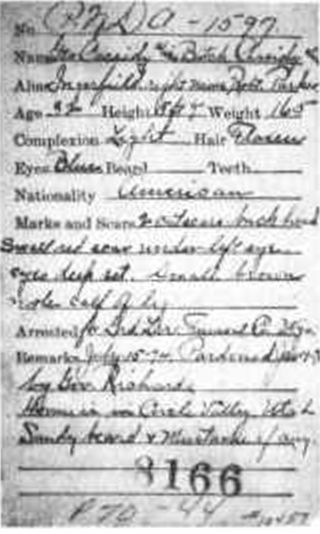 No (PNDA) A-1597
Name Geo Cassidy Butch Cassidy
Alias Ingerfield right name Robt. Parker
Age 32 Height 5 ft 9 Weight 165
Complexion Light Hair Flaxen
Eyes Blue Beard Teeth
Nationality American
Marks and Scars 2 cut scars back head
Small red scar under left eye
eyes deep set. Small brown
mole calf of leg
Arrested for Grd Lar Fremont Co Wyo
Remarks July 15-94. Pardoned
by Gov Richards
Home is in Circle Valley Utah
Sandy beard & Mustache if any.
8166
P 70 - 44